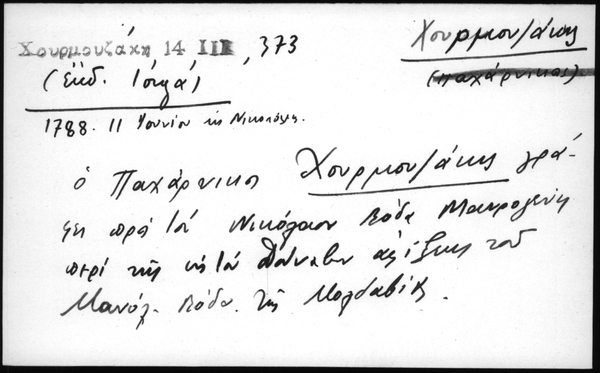 Χουρμουζάκη 14 III, 373
Χουρμουζάκης
(Ἔκδ. Ἰόργα)
(παχάρνικος)
1788. 11 Ἰουνίου ἐκ Νικοπόλεως.
ὁ Παχάρνικος Χουρμουζάκης γρά-
φει πρὸς τὸν Νικόλαον Βόδα Μαυρογένη
περὶ τῆς εἰς τὸν ἀφίξεως τοῦ
Μανόλ. Βόδα τῆς Μολδαβίας.